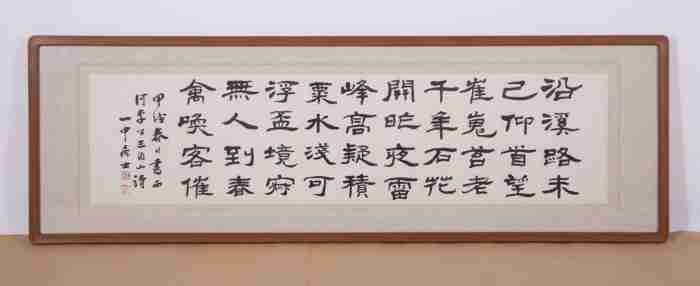 沿溪路未
已仰首望
崔嵬苔老
千年石花
開昨夜雷
峰高疑積
粟水淺可
浮盃境寂
無人到春
禽喚客催
甲戌春日書西
河李公三角山詩
一中居士